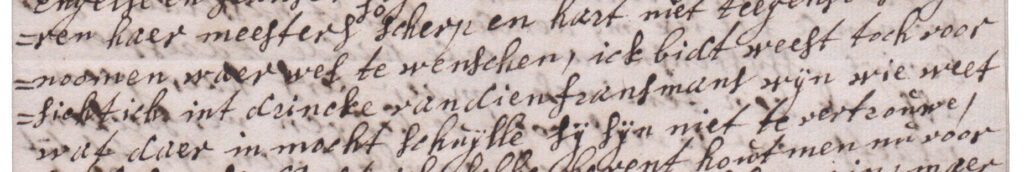 Engelse en
=ren haer meesters so scherp en hart niet teegens
=noomen, waer wes te wenschen, ick bidt weest toch voor
=sichtich int drincke van dien fransmans wÿn wie weet
wat daer in mocht schuÿlle sÿ sÿn niet te vertrouwe,
hout men nu voor